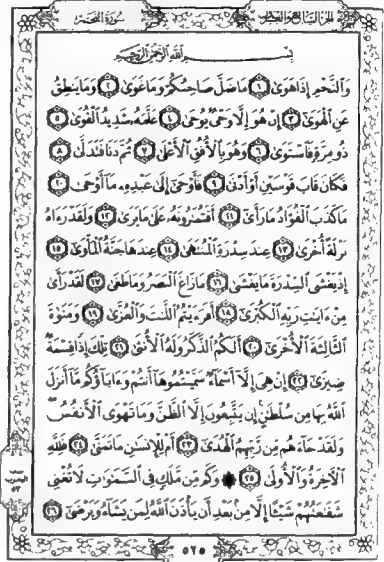 الجزء السابع والعشرون
سورة النجم
بسم الله الرحمن الرحيم
والنجم إذا هوى ١ ما ضل صاحبكم وما غوى ٢ وما ينطق
عن الهوى ٣ إن هو إلا وحي يوحى ٤ علمه شديد القوى ٥
ذو مرة فاستوى ٦ وهو بالأفق الأعلى ٧ ثم دنا فتدلى ٨
فكان قاب قوسين أو أدنى ٩ فأوحى إلى عبده ما أوحى ١٠
ما كذب الفؤاد ما رأى ١١ أفتمرونه على ما يرى ١٢ ولقد رءاه
نزلة أخرى ١٣ عند سدرة المنتهى ١٤ عندها جنة المأوى ١٥
إذ يغشى السدرة ما يغشى ١٦ ما زاغ البصر وما طغى ١٧ لقد رأى
من ءايت ربه الكبرى ١٨ أفرءيتم اللت والعزى ١٩ ومنوة
الثالثة الأخرى ٢٠ ألكم الذكر وله الأنثى ٢١ تلك إذا قسمة
ضيزى ٢٢ إن هي إلا أسماء سميتموها أنتم وءاباؤكم ما أنزل
الله بها من سلطن إن يتبعون إلا الظن وما تهوى الأنفس
ولقد جاءهم من ربهم الهدى ٢٣ أم للإنسن ما تمنى ٢٤ فلله
الآخرة والأولى ٢٥ وكم من ملك في السموت لا تغني
شفعتهم شيئا إلا من بعد أن يأذن الله لمن يشاء ويرضى ٢٦
٥٢٥